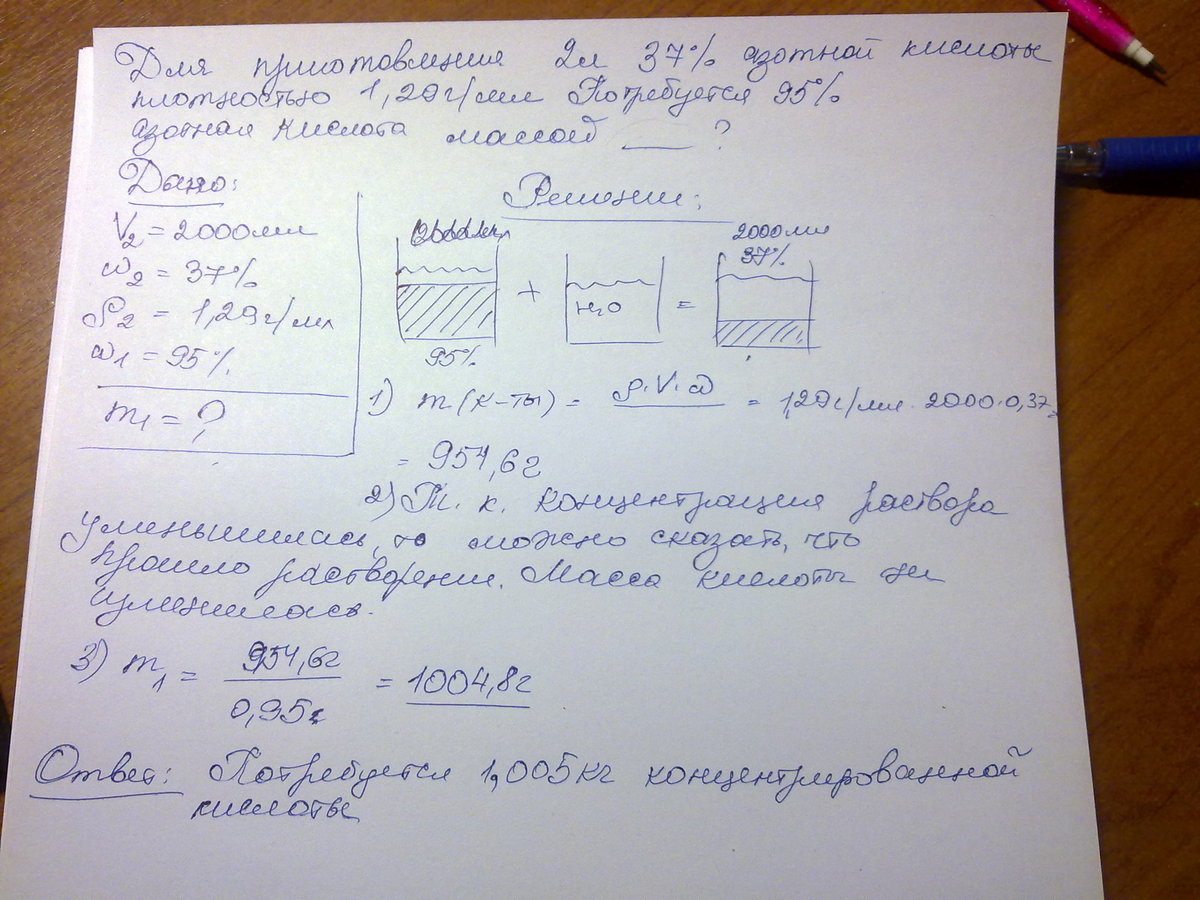 Для приготовления 2л 37% азотной кислоты
плотностью 1,29г/мл Потребуется 95%
азотная кислота массой ___ ?
Дано:
V2 = 2000мл
ω2 = 37%
ρ2 = 1,29г/мл
ω1 = 95%
m1 = ?
Решение:
2000мл
37%
+ H2O =
95%
1) m(к-ты) = ρ·V·ω = 1,29г/мл · 2000·0,37=
= 954,6г
2) Т. к. концентрация раствора
уменьшилась, то можно сказать, что
прошло растворение. Масса кислоты не
изменилась.
3) m1 = 954,6г / 0,95 = 1004,8г
Ответ: Потребуется 1,005кг концентрированной
кислоты